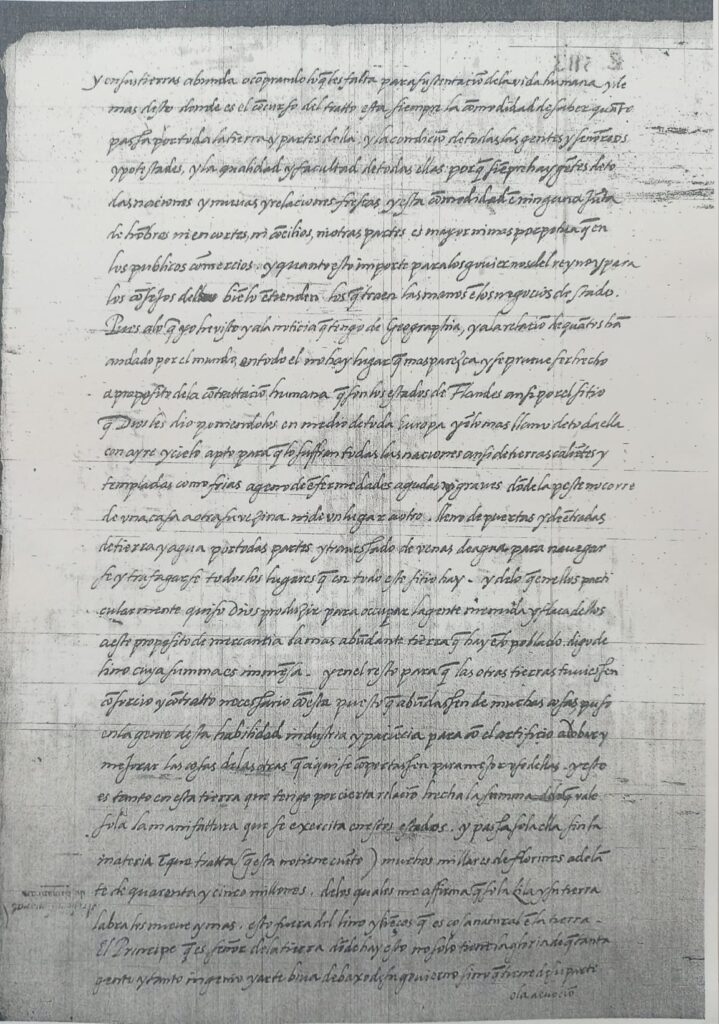 y en sus tierras abunda o comprando lo q̃ les falta para sustentaciõ de la vida humana y de
mas desto donde es el cõcurso del tratto esta siempre la comodidad de saber quãto
passa por toda la tierra y partes della, y la condiciõ de todas las gentes y señores
y potestades, y la qualidad y facultad de todas ellas porq̃ siẽpre hay gẽtes de to
das naciones y nuevas y relaciones frescas y esta comodidad ẽ ninguna junta
de hõbres ni en cortes, ni cõcilios, ni otras partes es mayor ni mas perpetua q̃ en
los publicos comercios y quanto esto importe para los goviernos del reyno y para
los cõsejos bien lo ẽtienden los q̃ traen las manos ẽ los negocios de stado.
Pues a lo q̃ yo he visto y a la noticia q̃ tengo de Geographia, y a la relaciõ de quãtos hã
andado por el mundo, en todo el no hay lugar q̃ mas paresca y se prueve ser hecho
a proposito de la cõtrattaciõ humana q̃ son los estados de Flandes ansi por el sitio
q̃ Dios les dio poniendolos en medio de toda Europa y ẽ lo mas llano de toda ella
con ayre y cielo apto para q̃ lo suffran todas las naciones ansi de tierras caliẽtes y
templadas como frias ageno de ẽfermedades agudas y graves dõde la peste no corre
de una casa a otra su vezina ni de un lugar a otro. lleno de puertas y de ẽtradas
de tierra y agua por todas partes y travessado de venas de agua para navegar
se y trafagarse todos los lugares q̃ en todo este sitio hay. y de lo q̃ en ellos parti
cularmente quiso Dios produzir para occupar la gente menuda y flaca dellos
a este proposito de mercantia la mas abũdante tierra q̃ hay ẽ lo poblado. digo de
lino cuya summa es immẽsa. y en el resto para q̃ las otras tierras tuviessen
cõsorcio y cõtratto necessario cõ esta puesto q̃ abũdassen de muchas cosas puso
en la gente desta habilidad industria y paciẽcia para cõ el artificio adobar y
mejorar las cosas de las otras q̃ aqui se cõportassen para mejor uso dellas. y esto
es tanto en esta tierra que tengo por cierta relaciõ hecha la summa q̃ vale
sola la manifattura que se exercita en estos estados. y passa sola ella sin la
materia ẽ que tratta (q̃ esta no tiene cuẽto) muchos millares de florines adelã
te de quarenta y cinco millones. de los quales me affirmã q̃ sola Lila y su tierra
labra los nueve y mas. esto fuera del lino y liẽços q̃ es cosa natural ẽ la tierra.
El Principe q̃ es señor de la tierra dõde hay esto no solo tiene la gloria de q̃ tanta
gente y tanto ingenio y arte biva debaxo de su govierno sino q̃ tiene de su parte